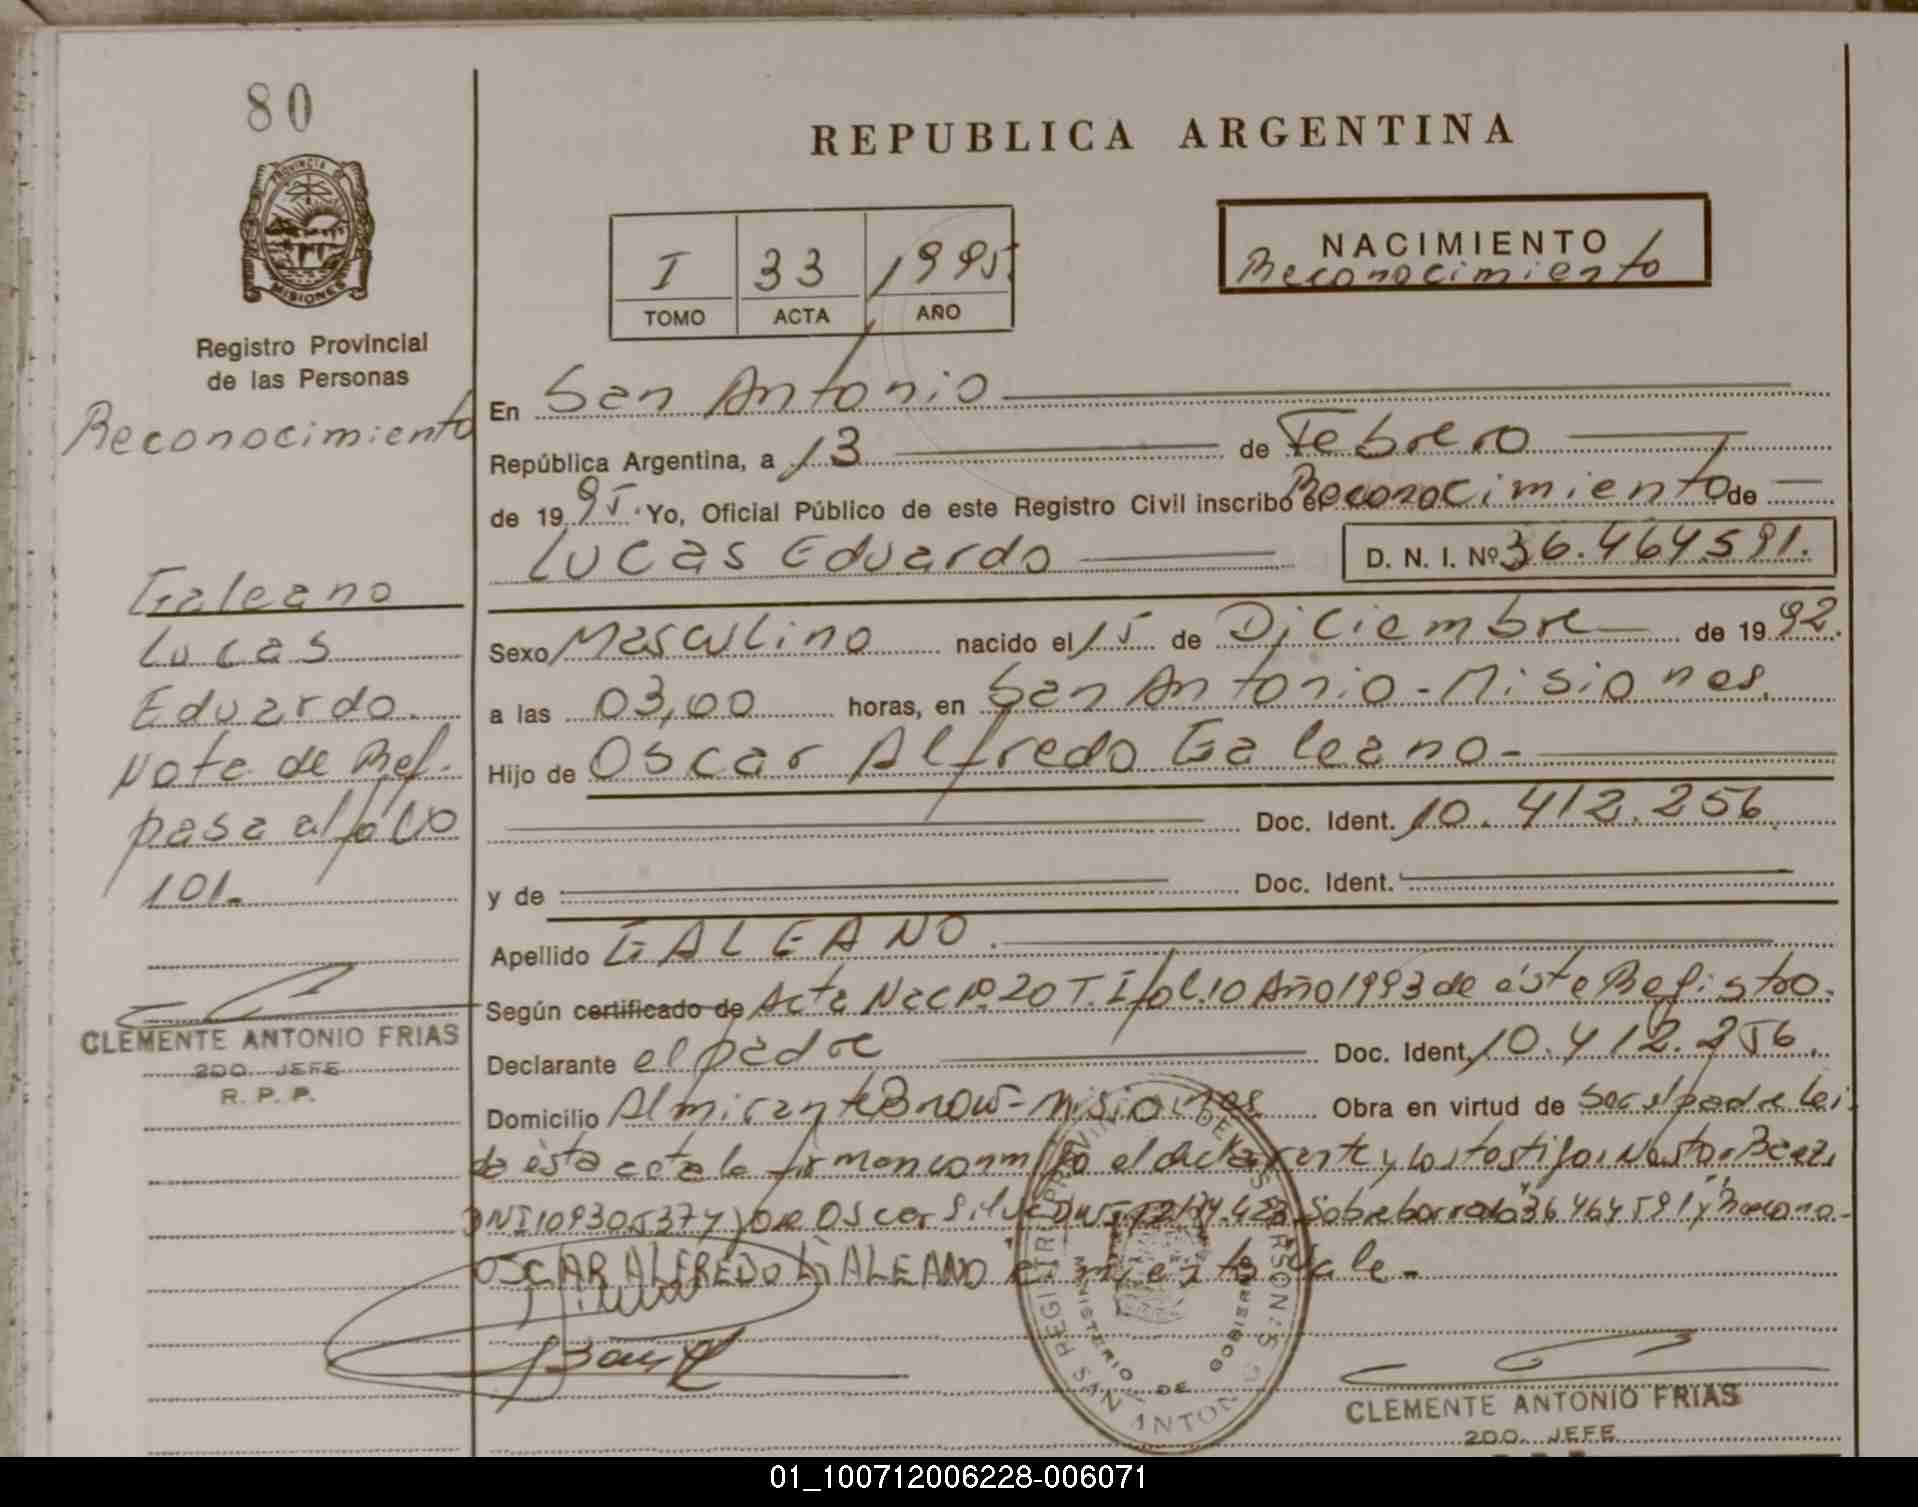 80
REPUBLICA ARGENTINA
PROVINCIA DE
MISIONES
Registro Provincial
de las Personas
I 33 1995
TOMO ACTA AÑO
NACIMIENTO
Reconocimiento
Reconocimiento
Galeano
Lucas
Eduardo.
Nota de Ref.
pasa al folio
101.
CLEMENTE ANTONIO FRIAS
2DO. JEFE
R. P. P.
En San Antonio
República Argentina, a 13 de Febrero
de 1995. Yo, Oficial Público de este Registro Civil inscribo el Reconocimiento de
Lucas Eduardo D. N. I. Nº 36.464.591.
Sexo Masculino nacido el 15 de Diciembre de 1992.
a las 03,00 horas, en San Antonio - Misiones.
Hijo de Oscar Alfredo Galeano
Doc. Ident. 10.412.256.
y de Doc. Ident.
Apellido GALEANO.
Según certificado de Acta Nac Nº 20 T. I fol. 10 Año 1993 de éste Registro.
Declarante el padre Doc. Ident. 10.412.256.
Domicilio Almirante Brow - Misiones Obra en virtud de ser el padre lei
da ésta acta la firman conmigo el declarante y los testigos Nestor
DNI y Oscar Sobreborrado 36464591 y Recono-
OSCAR ALFREDO GALEANO cimiento Vale -
REGISTRO PROVINCIAL DE LAS PERSONAS
MINISTERIO DE GOBIERNO
SAN ANTONIO
CLEMENTE ANTONIO FRIAS
2DO. JEFE
01_100712006228-006071